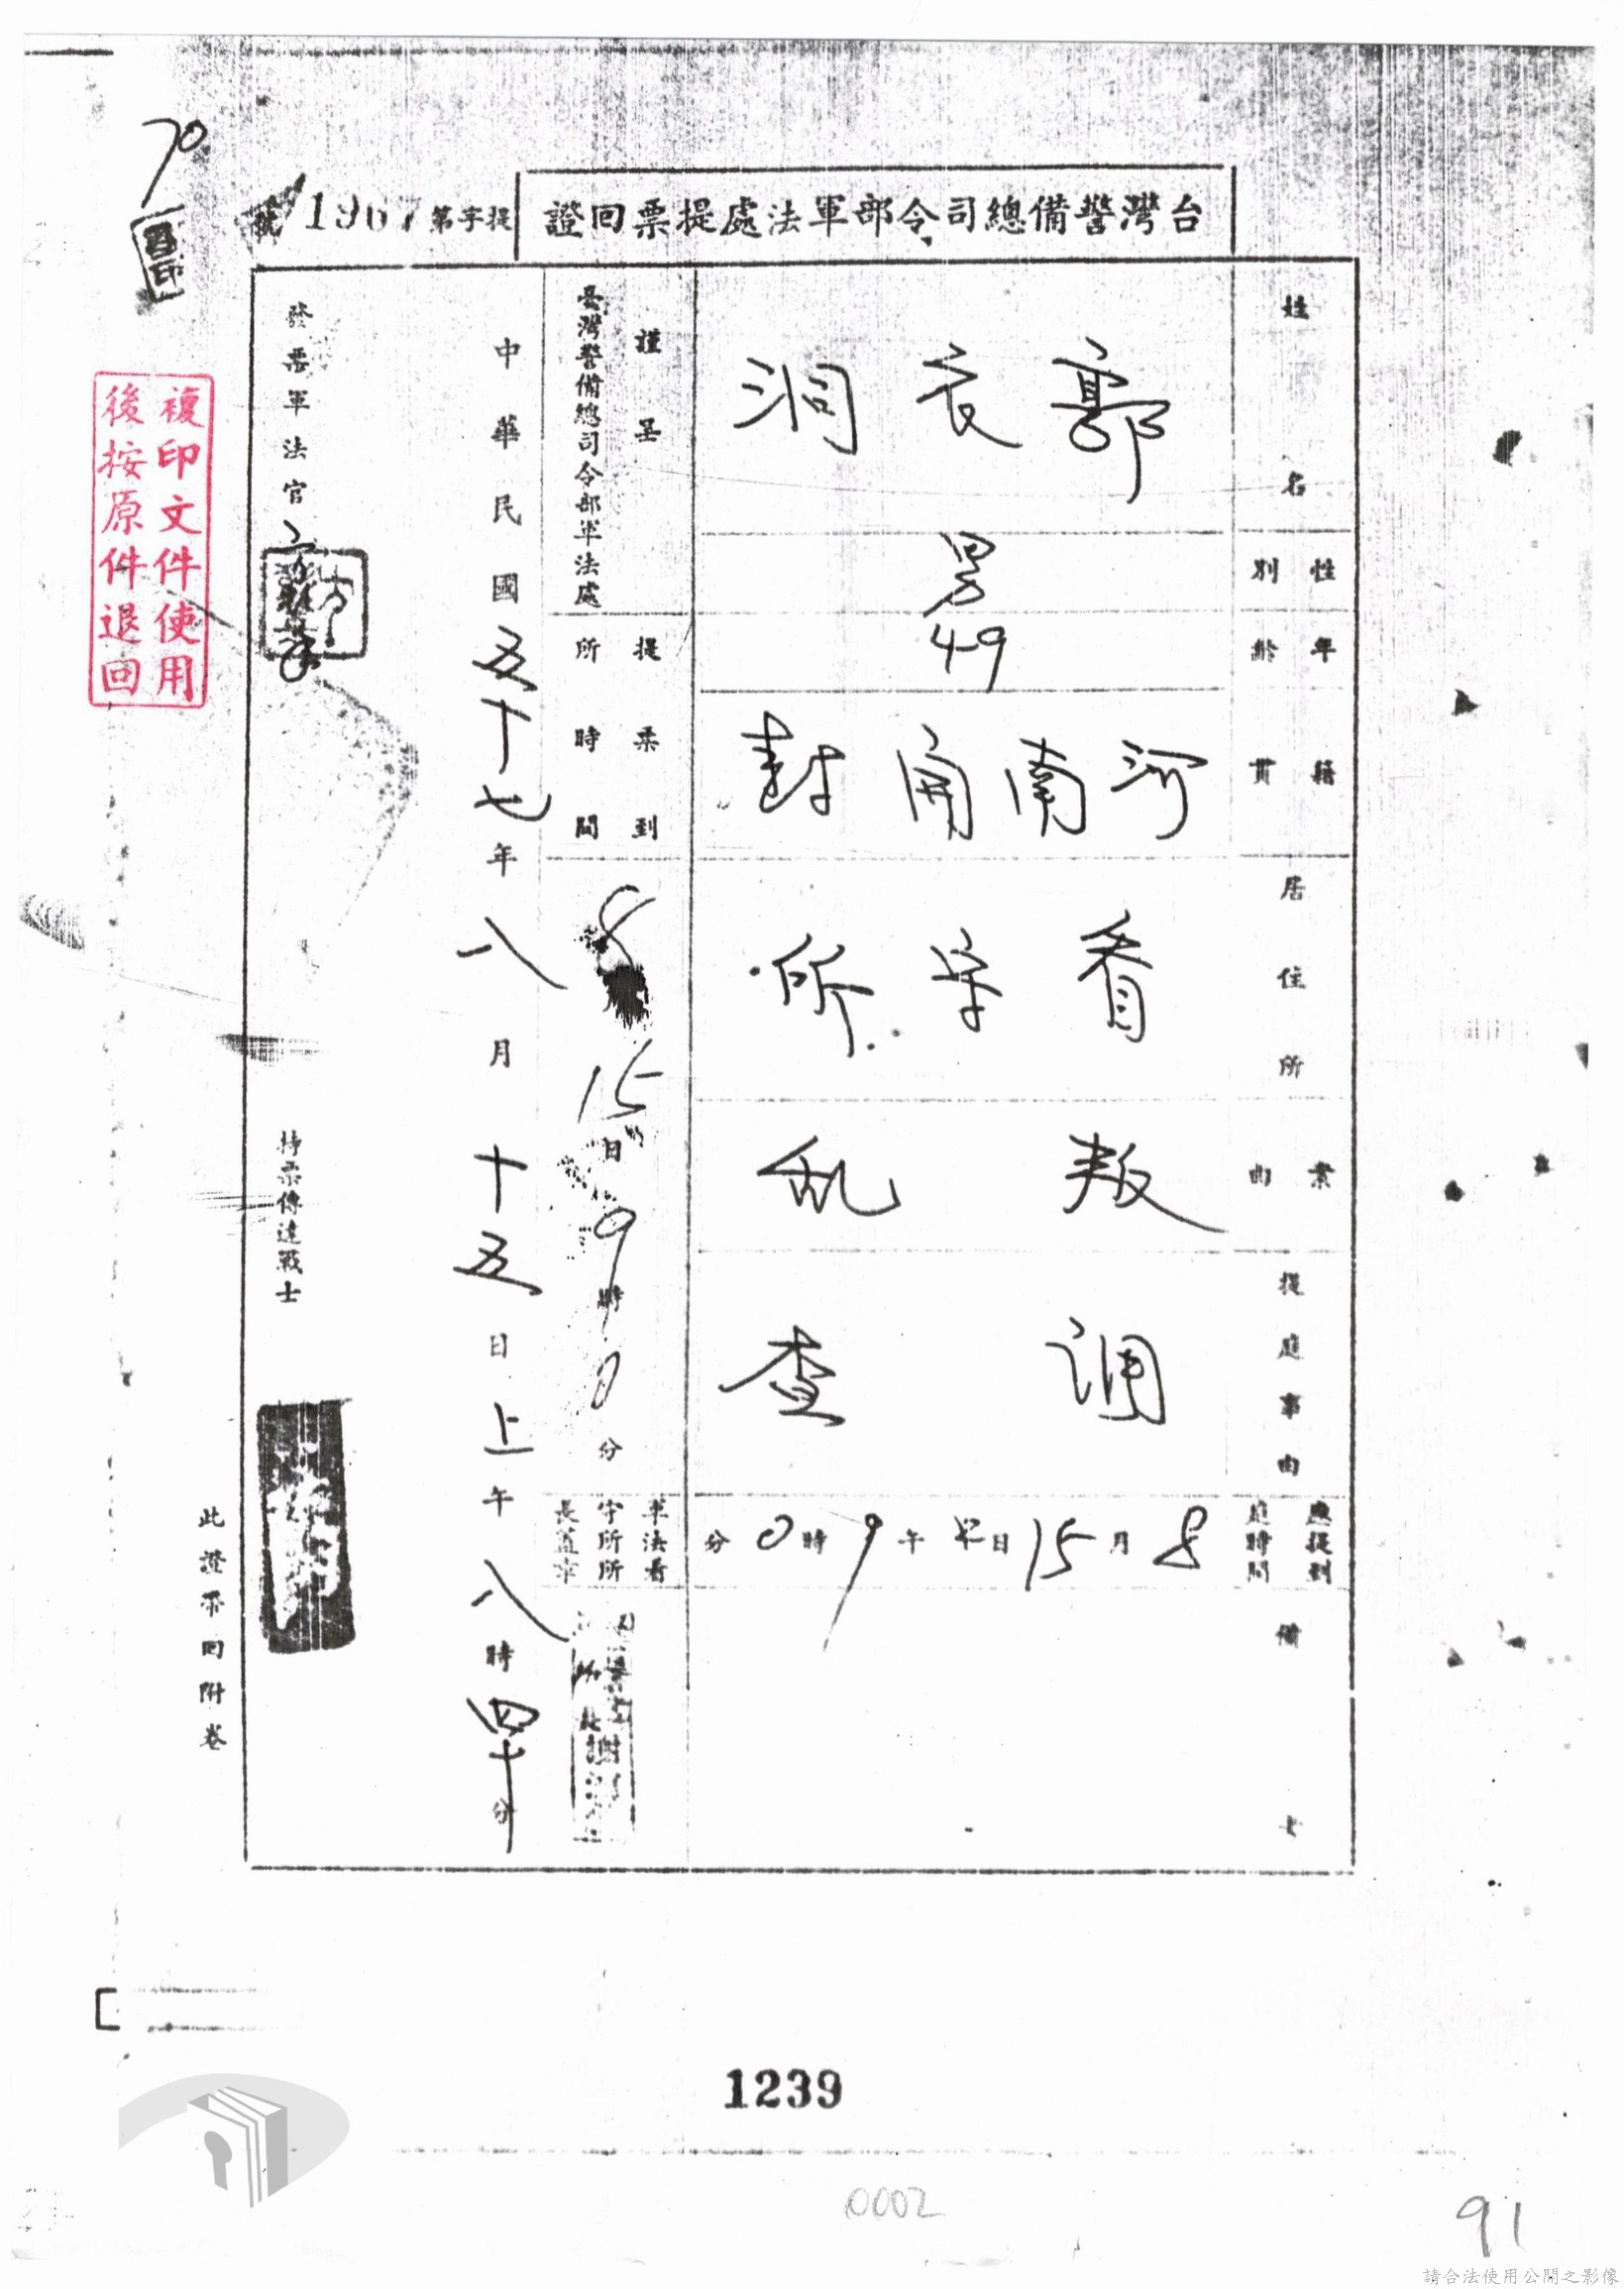 70
台灣警備總司令部軍法處提票回證
提字第1967號
姓名
郭衣洞
性別
男
年齡
49
籍貫
河南開封
居住所
看守所
案由
叛乱
提庭事由
調查
應提到庭時間
8月15日早午9時0分
備
謹呈
臺灣警備總司令部軍法處
提票到所時間
8月15日9時0分
軍法看守所所長蓋章
中華民國五十七年八月十五日上午八時四十分
發票軍法官
持票傳達戰士
此證帶回附卷
複印文件使用
後按原件退回
1239
0002
91
請合法使用公開之影像